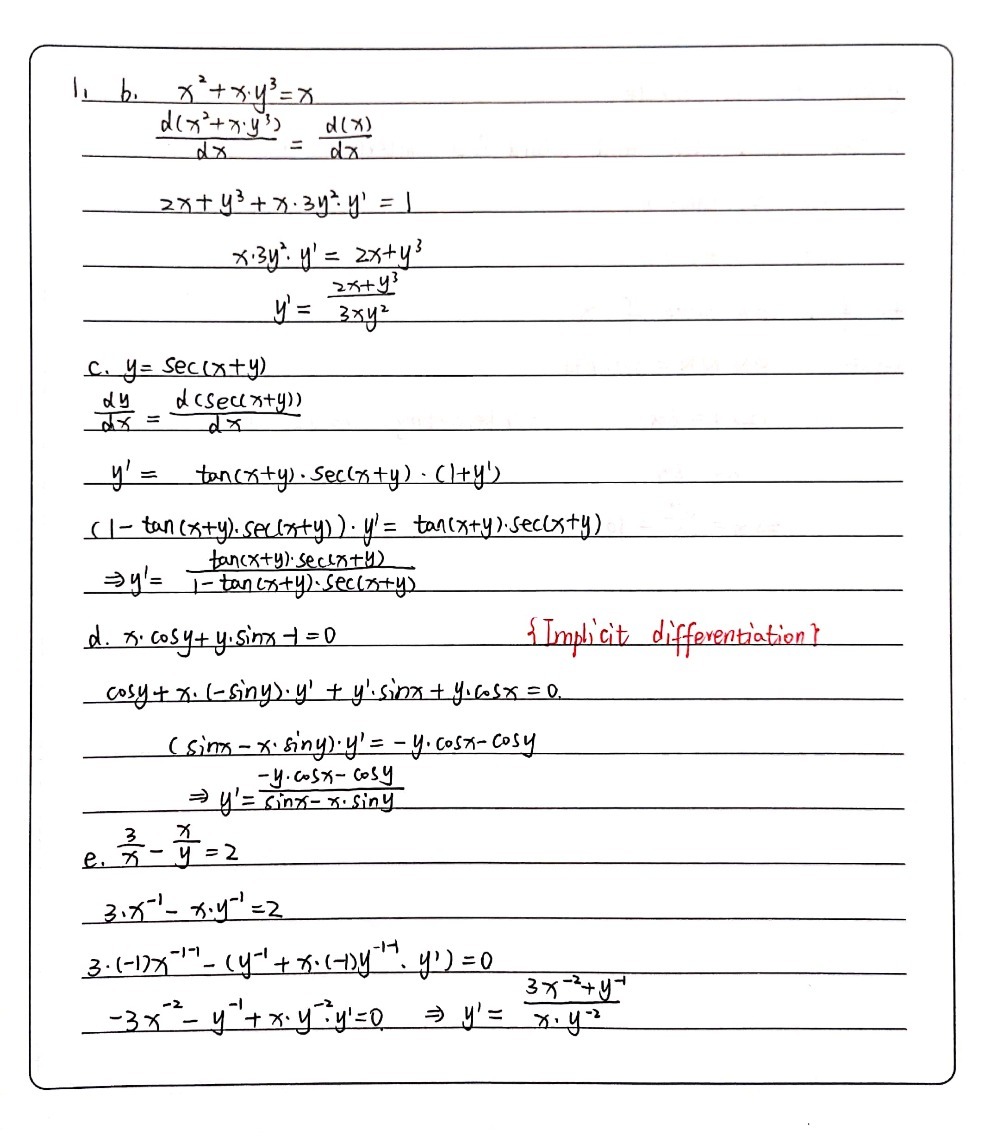 1. b. x² + x·y³ = x
d(x² + x·y³)/dx = d(x)/dx
2x + y³ + x·3y²·y' = 1
x·3y²·y' = 2x + y³
y' = (2x + y³)/(3xy²)
c. y = sec(x+y)
dy/dx = d(sec(x+y))/dx
y' = tan(x+y)·sec(x+y)·(1+y')
(1 - tan(x+y)·sec(x+y))·y' = tan(x+y)·sec(x+y)
⇒ y' = tan(x+y)·sec(x+y)/(1 - tan(x+y)·sec(x+y))
d. x·cosy + y·sinx - 1 = 0 {Implicit differentiation}
cosy + x·(-siny)·y' + y'·sinx + y·cosx = 0.
(sinx - x·siny)·y' = -y·cosx - cosy
⇒ y' = (-y·cosx - cosy)/(sinx - x·siny)
e. 3/x - x/y = 2
3·x⁻¹ - x·y⁻¹ = 2
3·(-1)x⁻¹⁻¹ - (y⁻¹ + x·(-1)y⁻¹⁻¹·y') = 0
-3x⁻² - y⁻¹ + x·y⁻²·y' = 0 ⇒ y' = (3x⁻² + y⁻¹)/(x·y⁻²)